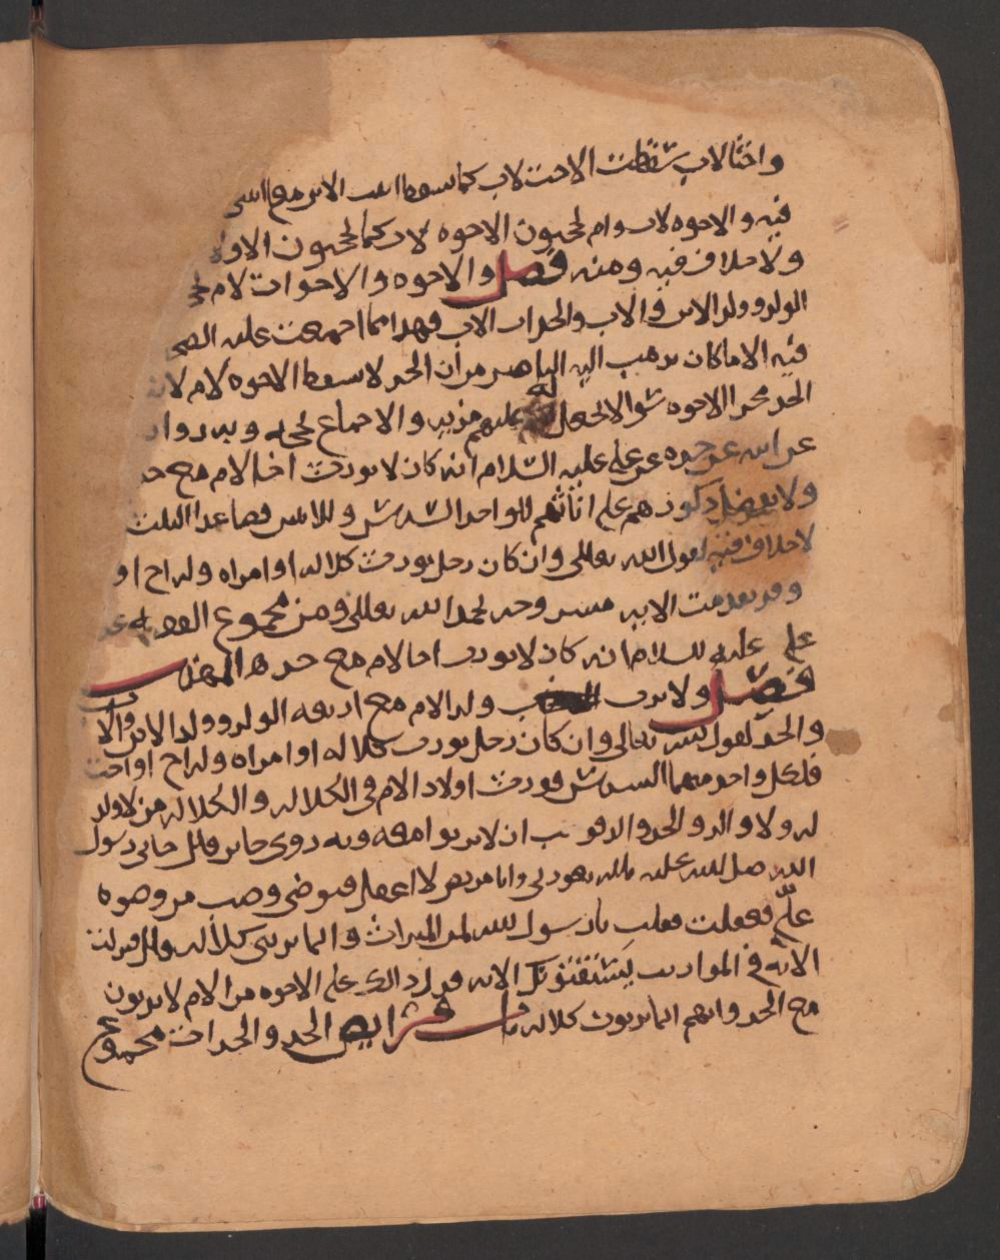 واختا لاب سقطت الاخت لاب كما يسقط ابن الابن مع
فيه والاخوه لاب وام يحجبون الاخوه لاب كما يحجبون الاولا
ولا خلاف فيه ومنه فصل والاخوه والاخوات لام
الولد وولد الابن والاب والجد اب الاب فهذا مما اجمعت عليه الصحا
فيه الا ما كان يذهب اليه الناصر من ان الجد لا يسقط الاخوه لام لان
الجد مجرا الاخوه سوا الا يجعل له عليهم مزيه والاجماع يحجه وبه روا
عن ابيه عن جده عن علي عليه السلام انه كان لا يورث اخا لام مع جد
ولا يفضل ذكورهم على اناثهم للواحد السدس وللاثنين فصاعدا الثلث
لا خلاف فيه لقول الله تعالى وان كان رجل يورث كلاله او امراه وله اخ او
وقد تقدمت الايه مشروحه بحمد الله تعالى ومن مجموع الفقه عن
علي عليه السلام انه كان لا يورث اخا لام مع جد هالمهذب
فصل ولا يرث ولد الام مع اربعه الولد وولد الابن والاب
والجد لقول الله تعالى وان كان رجل يورث كلاله او امراه وله اخ او اخت
فلكل واحد منهما السدس فورث اولاد الام في الكلاله والكلاله من لا ولد
له ولا والد والجد والد فوجب ان لا يرثوا معه وبه روى جابر قال جاني رسول
الله صلى الله عليه واله يعودني وانا مريض لا اعقل فتوضى وصب من وضوه
عليّ فعقلت فقلت يا رسول الله لمن الميراث وانما يرثني كلاله قال فنزلت
الايه في المواريث يستفتونك الايه فدل ذلك على الاخوه من الام لا يرثون
مع الجد وانهم انما يرثون كلاله باب فرايض الجد والجدات مجموع